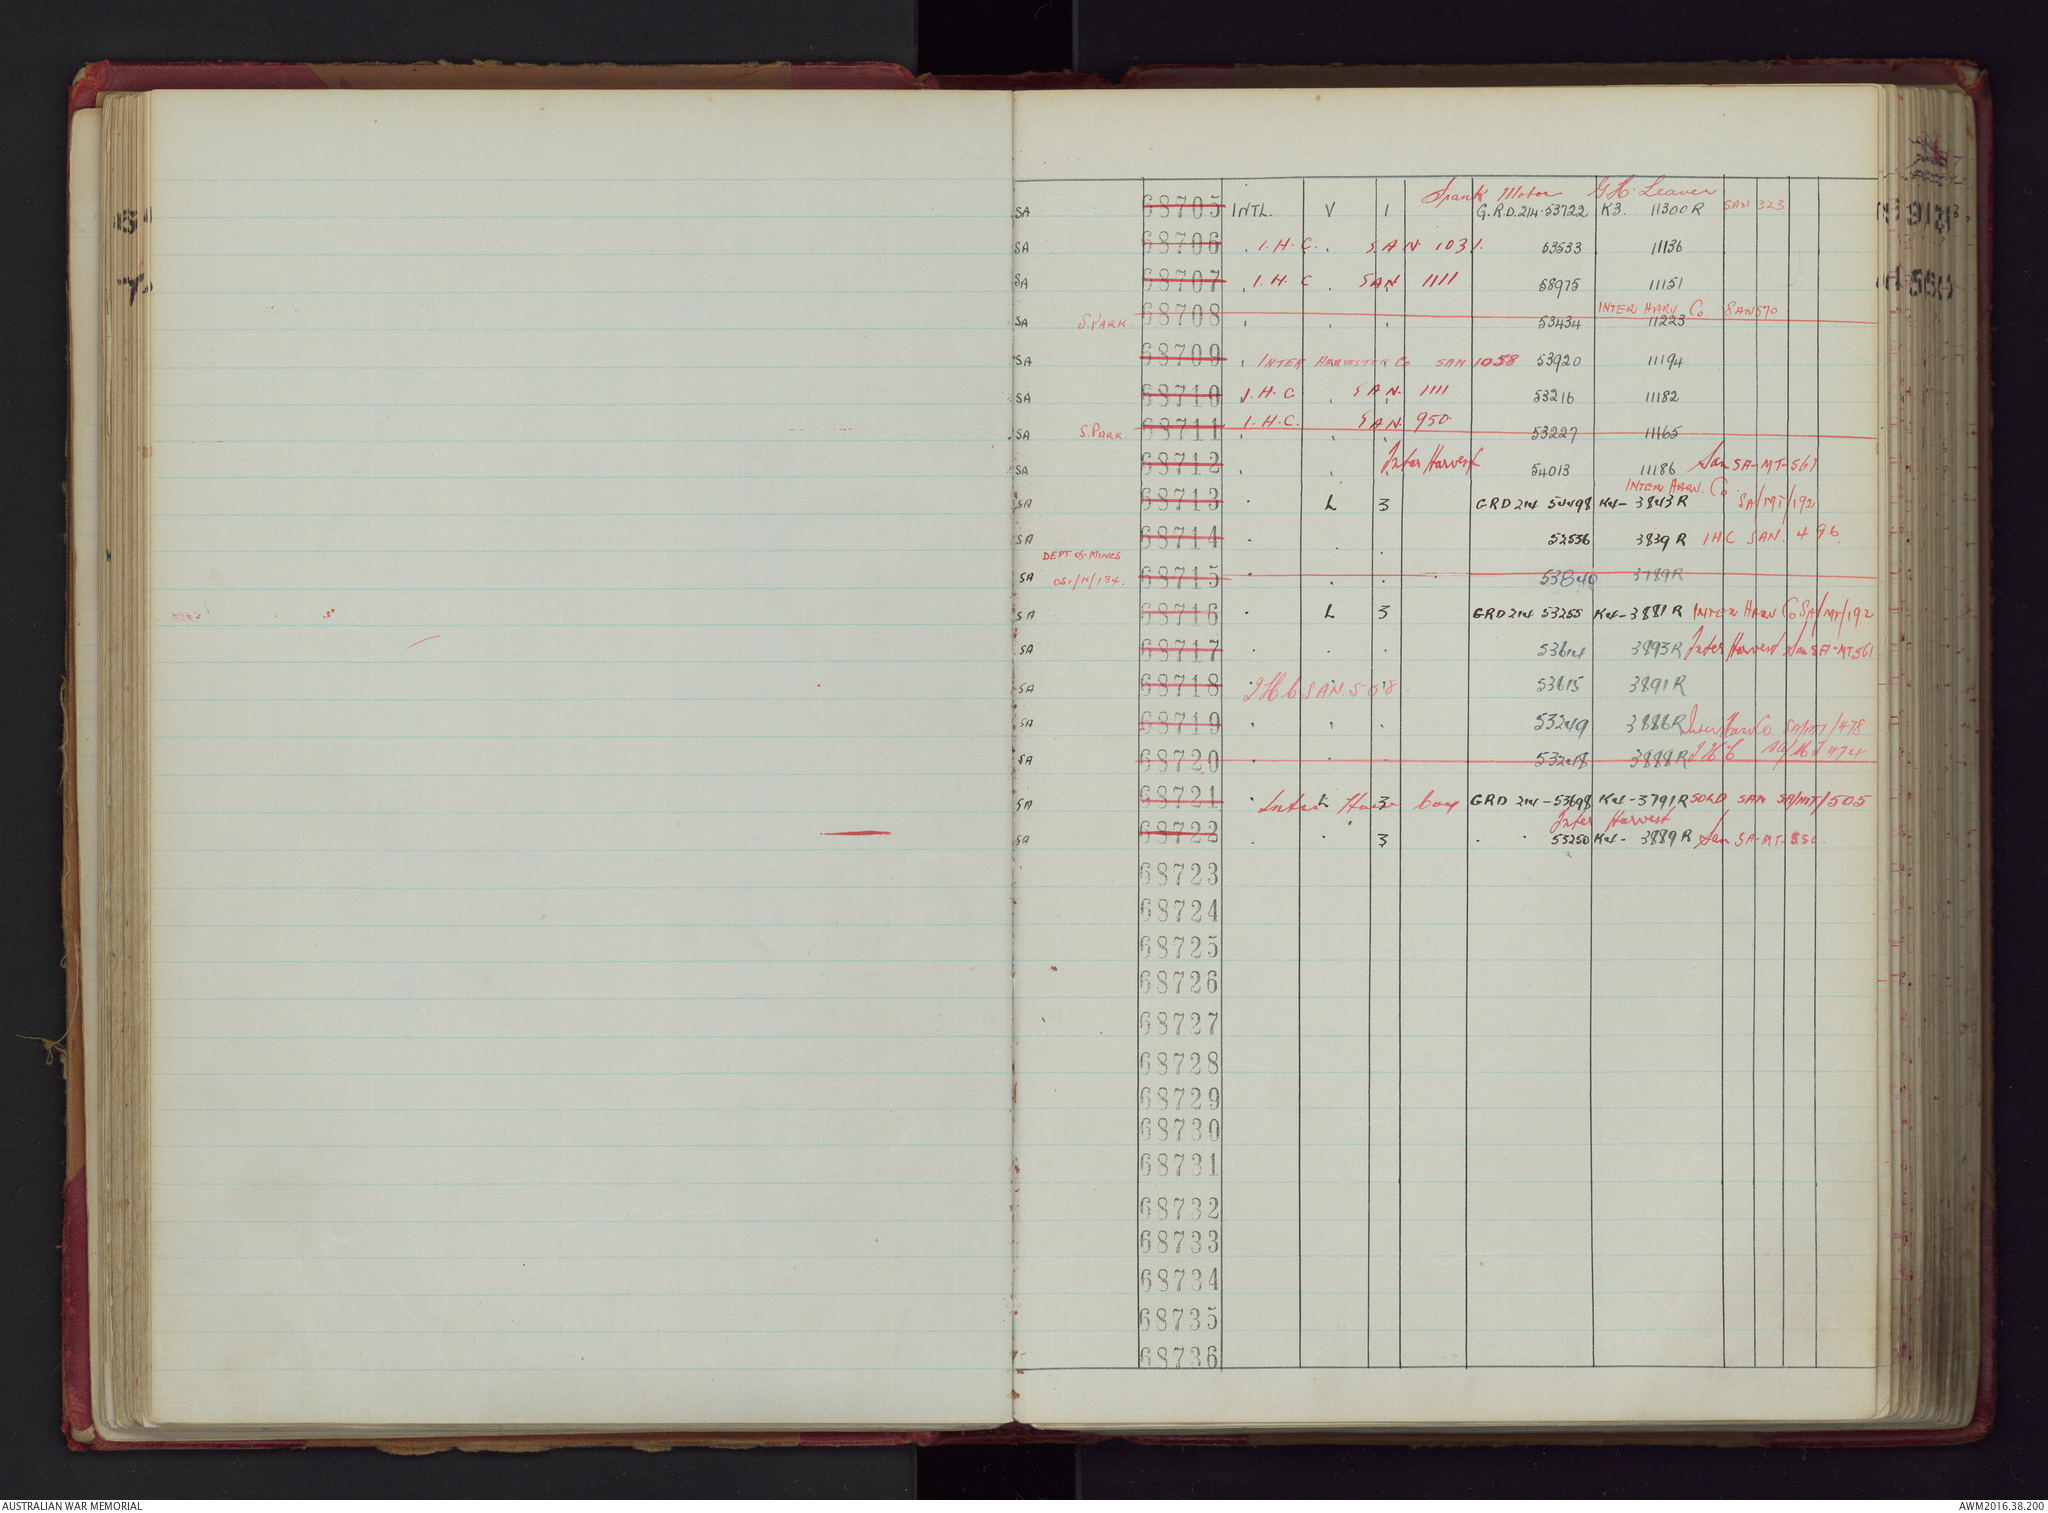 Frank Motor G.H. Leaver
SA 68705 INTL. V 1 G.R.D.214-53722 K3. 11300R SAN 323
SA 68706 I.H.C. SAN 1031. 53533 11136
SA 68707 I.H.C SAN 1111 58975 11151
INTER HARV Co SAN 570
SA S.PARK. 68708 53434 11223
SA 68709 INTER HARVESTER Co SAN 1058 53920 11194
SA 68710 I.H.C SAN. 1111 53216 11182
I.H.C. SAN. 950.
SA S.PARK. 68711 53227 11165
SA 68712 Inter Harvest 54013 11186 San SA-MT-561
INTER HARV. Co.
SA 68713 L 3 GRD 214 54498 K41- 3843 R SA/MT/192
SA 68714 52536 3839 R IHC SAN. 496.
DEPT OF MINES
SA 68715 53840 3789R
SA 68716 L 3 GRD 214 53255 K41-3881 R INTER HARV Co SA/MT/192
SA 68717 53614 3893R Inter Harvest San SA-MT.561
SA 68718 I H C SAN. 508. 53615 3891R
SA 68719 53249 3886R Inter Harv Co SA/MT/478
SA 68720 53248 3888R I H C SA/MT 474
SA 68721 Inter Harv Coy L 3 GRD 214-53698 K41-3791R SOLD SAN SA/MT/505
Inter Harvest
SA 68722 3 53250 K41- 3889 R San SA-MT-550.
68723
68724
68725
68726
68727
68728
68729
68730
68731
68732
68733
68734
68735
68736
AUSTRALIAN WAR MEMORIAL
AWM2016.38.200